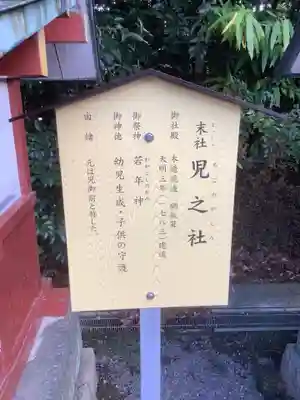 末社 児之社
御社殿 木造流造 銅板葺
天明三年(一七八三)建造
御祭神 若年神
御神徳 幼児生成・子供の守護
由緒 元は児御前と称した。